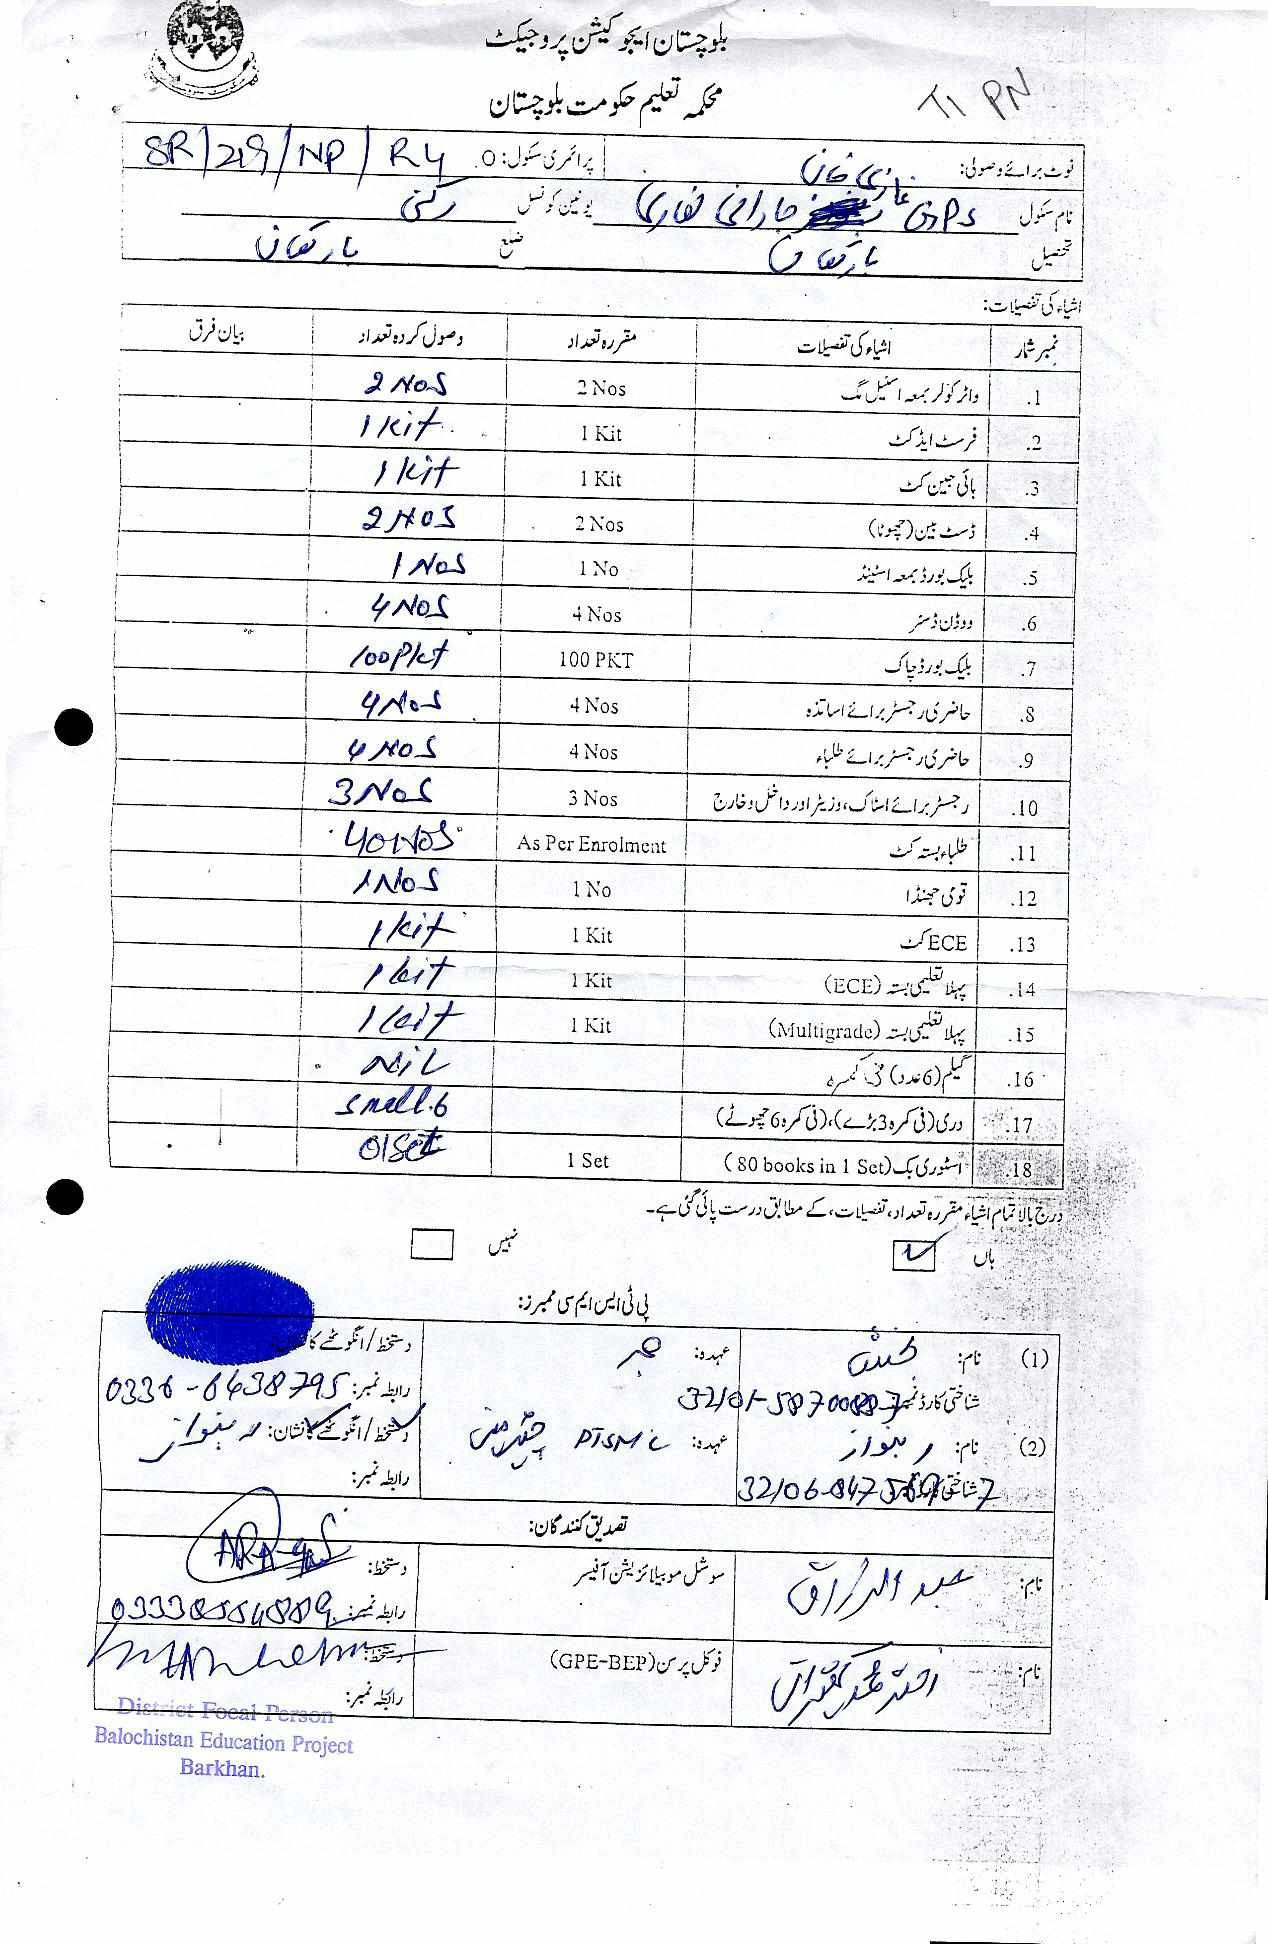 بلوچستان ایجوکیشن پروجیکٹ
محکمہ تعلیم حکومت بلوچستان
T1 PN
نوٹ برائے وصولی: پرائمری سکول: O. SR/219/NP/R4
نام سکول GPS غازی خان یونین کونسل رکنی
تحصیل بارکھان ضلع بارکھان
اشیاء کی تفصیلات:
نمبر شمار اشیاء کی تفصیلات مقررہ تعداد وصول کردہ تعداد بیان فرق
.1 واٹر کولر بمعہ اسٹیل مگ 2 Nos 2 Nos
.2 فرسٹ ایڈ کٹ 1 Kit 1 Kit
.3 ہائی جین کٹ 1 Kit 1 Kit
.4 ڈسٹ بین (چھوٹا) 2 Nos 2 Nos
.5 بلیک بورڈ بمعہ اسٹینڈ 1 No 1 Nos
.6 ووڈن ڈسٹر 4 Nos 4 Nos
.7 بلیک بورڈ چاک 100 PKT 100 Pkt
.8 حاضری رجسٹر برائے اساتذہ 4 Nos 4 Nos
.9 حاضری رجسٹر برائے طلباء 4 Nos 4 Nos
.10 رجسٹر برائے اسٹاک، وزیٹر اور داخل و خارج 3 Nos 3 Nos
.11 طلباء بستہ کٹ As Per Enrolment 40 Nos
.12 قومی جھنڈا 1 No 1 Nos
.13 ECE کٹ 1 Kit 1 kit
.14 پہلا تعلیمی بستہ (ECE) 1 Kit 1 kit
.15 پہلا تعلیمی بستہ (Multigrade) 1 Kit 1 kit
.16 گیلم (6 عدد) فی کمرہ NiL
.17 دری (فی کمرہ 3 بڑے)، (فی کمرہ 6 چھوٹے) small.6
.18 اسٹوری بک (80 books in 1 Set) 1 Set 01 Set
درج بالا تمام اشیاء مقررہ تعداد، تفصیلات، کے مطابق درست پائی گئی ہے۔
ہاں نہیں
پی ٹی ایس ایم سی ممبرز:
(1) نام: عہدہ: ممبر دستخط/انگوٹھے کا نشان:
شناختی کارڈ نمبر: رابطہ نمبر: 0336-6438795
(2) نام: ربنواز عہدہ: PTSMC چیئرمین دستخط/انگوٹھے کا نشان: ربنواز
شناختی کارڈ نمبر: رابطہ نمبر:
تصدیق کنندگان:
نام: عبدالرزاق سوشل موبیلائزیشن آفیسر دستخط:
رابطہ نمبر: 03338554889
نام: اختر محمد کھیتران فوکل پرسن (GPE-BEP) دستخط:
رابطہ نمبر:
District Focal Person
Balochistan Education Project
Barkhan.